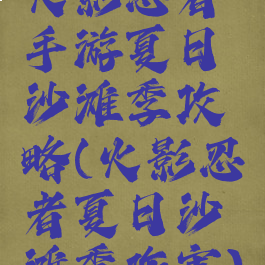 火影忍者
手游夏日
沙滩季攻
略(火影忍
者夏日沙
滩季攻害)